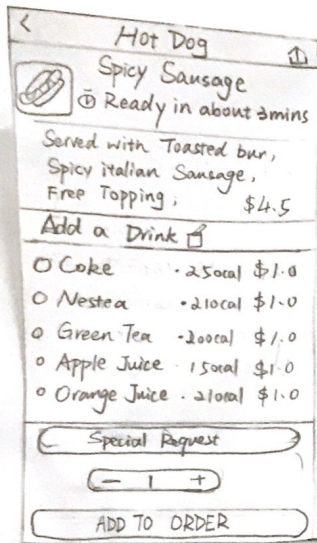 <
Hot Dog
Spicy Sausage
Ready in about 3mins
Served with Toasted bun,
Spicy italian Sausage,
Free Topping,
$4.5
Add a Drink
Coke · 250cal $1.0
Nestea · 210cal $1.0
Green Tea · 200cal $1.0
Apple Juice · 150cal $1.0
Orange Juice · 210cal $1.0
Special Request
- 1 +
ADD TO ORDER